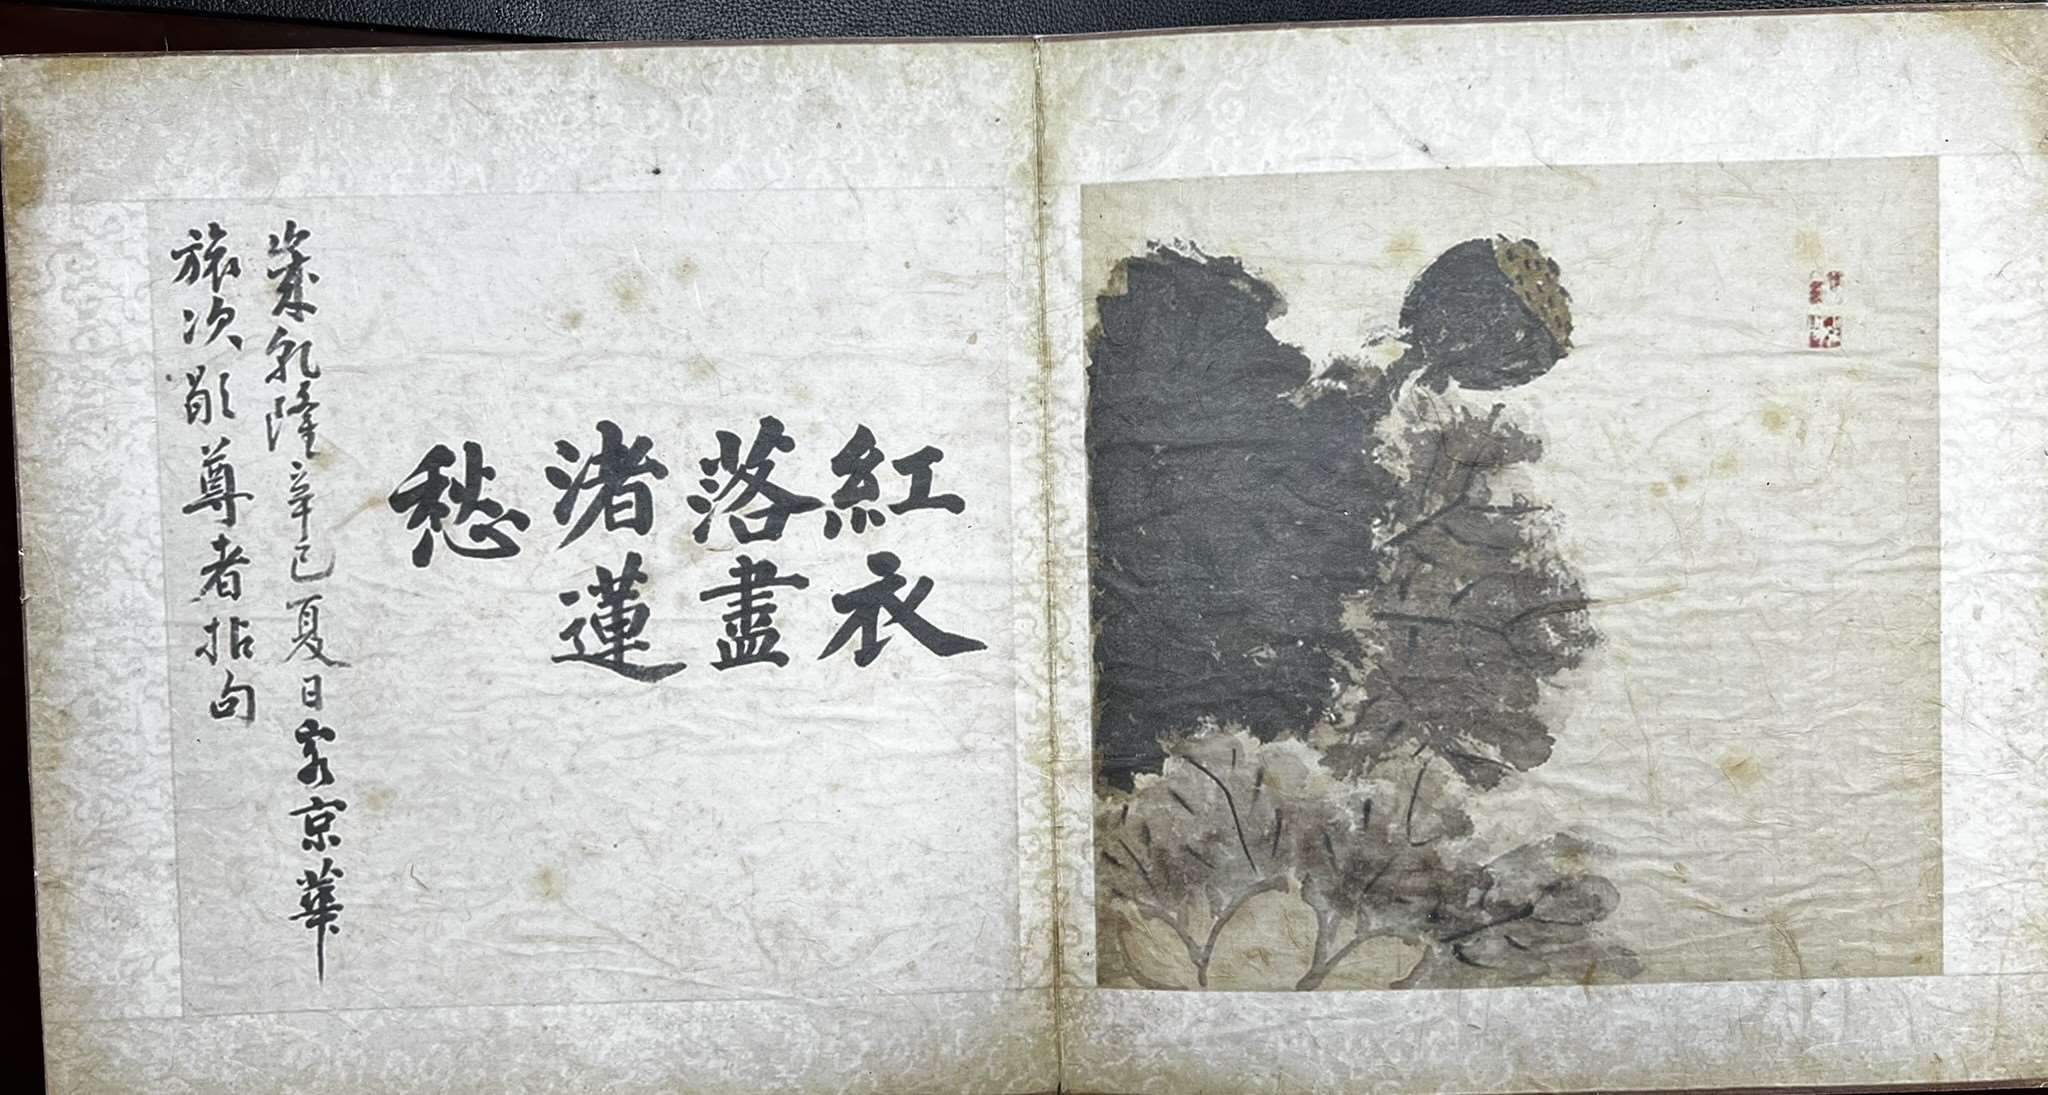 紅衣
落盡
渚蓮
愁
歲乳隆辛巳夏日客京華
旅次歇尊者拈句